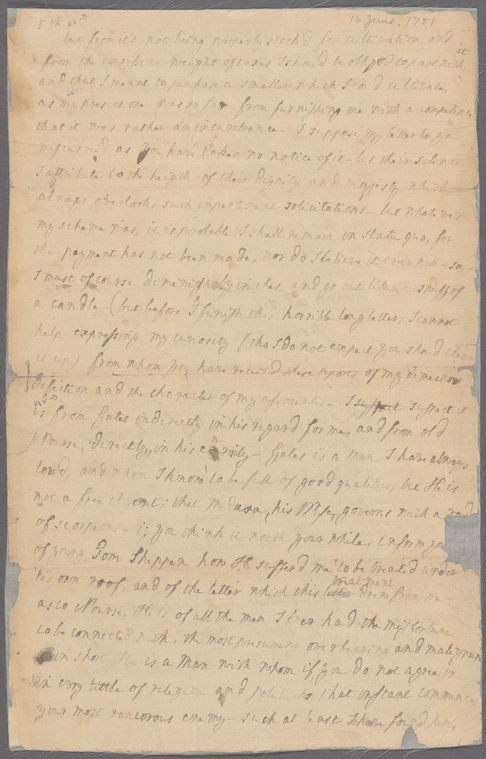 16 June, 1781
but from it's not being properly stock'd for cultivation and
from the excessive weight of taxes I should be oblig'd to part with it
and that I meant to purchase a smaller which I cou'd cultivate,
as my present one was so far from furnishing me with a competence
that it was rather an incumbrance - I suppose my letter to you
miscarried as you have taken no notice of it - but their silence
I attribute to the height of their dignity and majesty which
always overlooks such impertinent solicitations - but whatever
my scheme was, it is probable I shall remain in statu quo, for
the payment has not been made, nor do I believe it ever will - so
I must of course diminish by inches, and go out like a snuff of
a candle (but before I finish this horrible long letter, I cannot
help expressing my curiosity (tho I do not expect you should
it up) from whom you have received these reports of my demeanor
and the character of my associates - I suspect it
is from Gates indirectly in his regard for me, and from old
Nourse, directly, in his enmity - Gates is a man I have always
lov'd, and whom I know to be full of good qualities; but He is
not a free agent; that Medusa, his Wife, governs with a rod
of scorpions - if you think it worth your while, inform
of young Tom Shippen how He suffer'd me to be treated under
his own roof, and of the letter which this treatment drew from me
as to Nourse, He is of all the men I ever had the misfortune
to be connected with, the most presuming overbearing and malignant
in short He is a Man with whom if you do not agree in
in every tittle of religion and politicks, that instant commences
your most rancorous enemy - such at least I have found him,